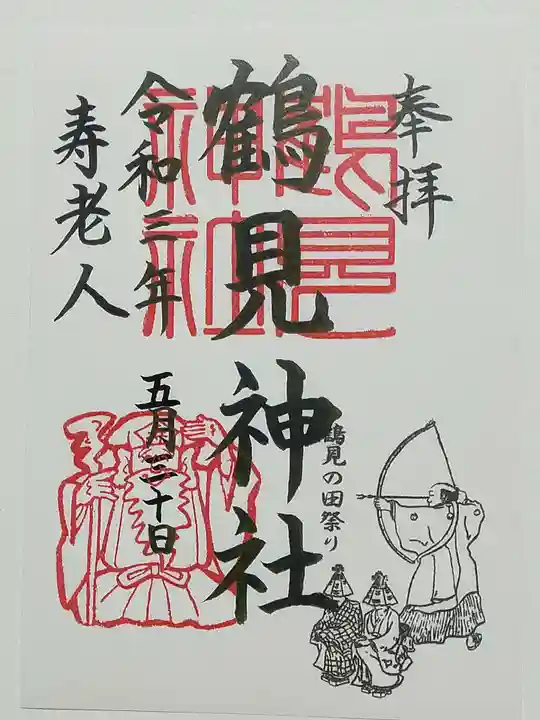 奉拝
鶴見神社
鶴見
神社
鶴見の田祭り
令和三年
五月三十日
寿老人